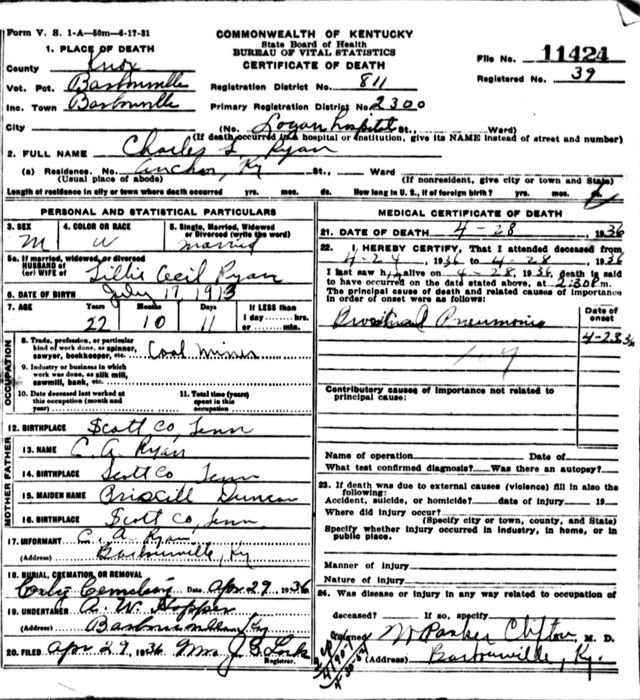 Form V. S. 1-A—50m—6-17-31
COMMONWEALTH OF KENTUCKY
State Board of Health
BUREAU OF VITAL STATISTICS
CERTIFICATE OF DEATH
File No. 11424
Registered No. 39
1. PLACE OF DEATH
County Knox
Vot. Pct. Barbourville
Inc. Town Barbourville
City
Registration District No. 811
Primary Registration District No. 2300
(No. Logan hospital St., Ward)
(If death occurred in a hospital or institution, give its NAME instead of street and number)
2. FULL NAME Charles L Ryan
(a) Residence. No. Anchor, Ky St., Ward
(Usual place of abode) (If nonresident, give city or town and State)
Length of residence in city or town where death occurred yrs. mos. ds. How long in U. S., if of foreign birth? yrs. mos. ds.
PERSONAL AND STATISTICAL PARTICULARS
3. SEX M
4. COLOR OR RACE W
5. Single, Married, Widowed or Divorced (write the word) Married
5a. If married, widowed, or divorced
HUSBAND of
(or) WIFE of Lillie Cecil Ryan
6. DATE OF BIRTH July 17 1913
7. AGE Years Months Days If LESS than
22 10 11 1 day hrs.
or min.
OCCUPATION
8. Trade, profession, or particular
kind of work done, as spinner,
sawyer, bookkeeper, etc. Coal Miner
9. Industry or business in which
work was done, as silk mill,
sawmill, bank, etc.
10. Date deceased last worked at
this occupation (month and
year)
11. Total time (years)
spent in this
occupation
12. BIRTHPLACE Scott Co, Tenn
FATHER
13. NAME C. A. Ryan
14. BIRTHPLACE Scott Co Tenn
MOTHER
15. MAIDEN NAME Priscill Duncan
16. BIRTHPLACE Scott Co, Tenn
17. INFORMANT C. A. Ryan
(Address) Barbourville, Ky
18. BURIAL, CREMATION, OR REMOVAL
Cemetery Date Apr 29 1936
19. UNDERTAKER A. W. Hopper
(Address) Barbourville Ky
20. FILED Apr 29 1936 Mrs J. Registrar.
MEDICAL CERTIFICATE OF DEATH
21. DATE OF DEATH 4-28, 1936
22. I HEREBY CERTIFY, That I attended deceased from
4-24, 1936 to 4-28, 1936
I last saw him alive on 4-28, 1936, death is said
to have occurred on the date stated above, at 2:30 P m.
The principal cause of death and related causes of importance
in order of onset were as follows:
Date of onset
Pneumonia 4-28 36
Contributory causes of importance not related to
principal cause:
Name of operation Date of
What test confirmed diagnosis? Was there an autopsy?
23. If death was due to external causes (violence) fill in also the
following:
Accident, suicide, or homicide? date of injury 19
Where did injury occur?
(Specify city or town, county, and State)
Specify whether injury occurred in industry, in home, or in
public place.
Manner of injury
Nature of injury
24. Was disease or injury in any way related to occupation of
deceased? If so, specify
(Signed) W Parker Clifton M. D.
(Address) Barbourville, Ky.